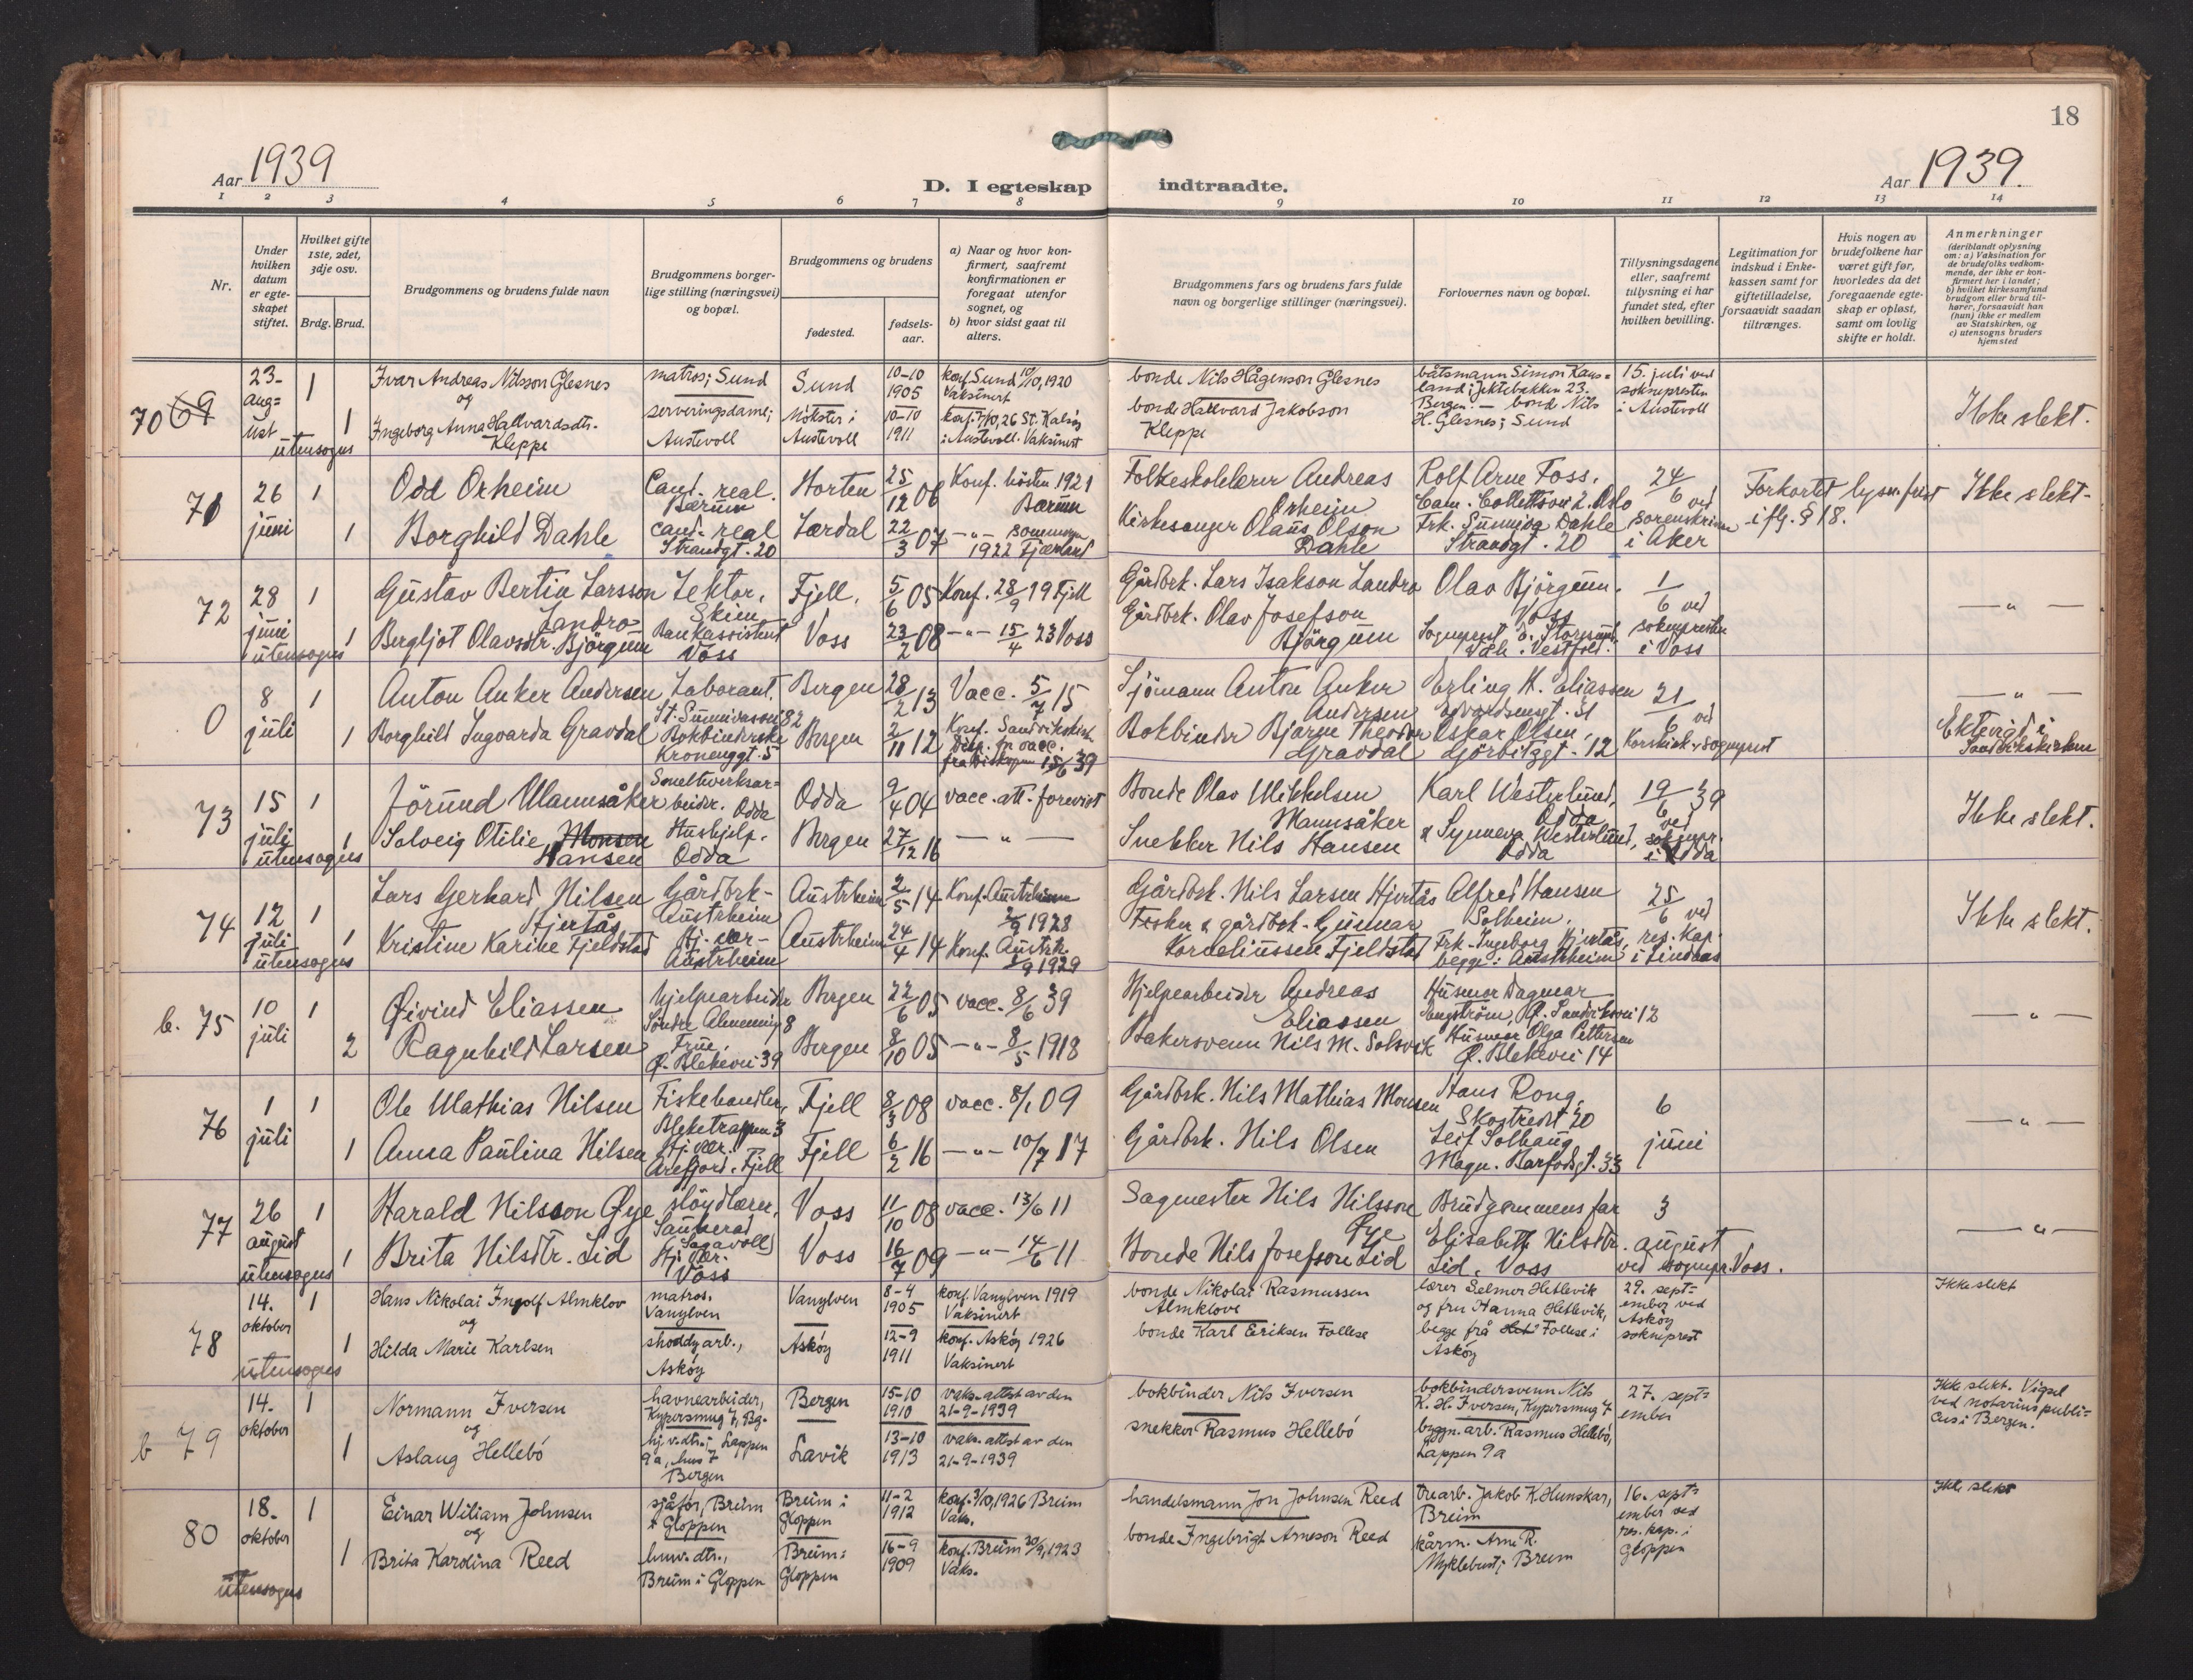 18
Aar 1939
D. I egteskap indtraadte.
Aar 1939.
1 2 3 4 5 6 7 8 9 10 11 12 13 14
Nr.
Under hvilken datum er egteskapet stiftet.
Hvilket gifte 1ste, 2det, 3dje osv.
Brdg. Brud.
Brudgommens og brudens fulde navn
Brudgommens borgerlige stilling (næringsvei) og bopæl.
Brudgommens og brudens
fødested.
fødselsaar.
a) Naar og hvor konfirmert, saafremt konfirmationen er foregaat utenfor sognet, og
b) hvor sidst gaat til alters.
Brudgommens fars og brudens fars fulde navn og borgerlige stillinger (næringsvei).
Forlovernes navn og bopæl.
Tillysningsdagene eller, saafremt tillysning ei har fundet sted, efter hvilken bevilling.
Legitimation for indskud i Enkekassen samt for giftetilladelse, forsaavidt saadan tiltrænges.
Hvis nogen av brudefolkene har været gift før, hvorledes da det foregaaende egteskap er opløst, samt om lovlig skifte er holdt.
Anmerkninger (deriblandt oplysning om: a) Vaksination for de brudefolks vedkommende, der ikke er konfirmert her i landet; b) hvilket kirkesamfund brudgom eller brud tilhører, forsaavidt han (hun) ikke er medlem av Statskirken, og c) utensogns bruders hjemsted
70 69
23- aug=ust
utensogns
1
1
Ivar Andreas Nilsson Glesnes
og
Ingeborg Anna Hallvardsdtr. Kleppe
matros; Sund
serveringsdame; Austevoll
Sund
Møkster i Austevoll
10-10 1905
10-10 1911
konf. Sund 10/10, 1920 Vaksinert
konf. 7/10, 26 St. Kalsøy i Austevoll. Vaksinert
bonde Nils Hågenson Glesnes
bonde Hallvard Jakobson Kleppe
båtsmann Simon Kausland; Jektebakken 23. Bergen. — bonde Nils H. Glesnes; Sund
15. juli ved soknepresten i Austevoll
Ikke slekt.
71
26 juni
1
1
Odd Orheim
Borghild Dahle
Cand. real. Bærum
cand. real Strandgt. 20
Horten
Lærdal
25/12 06
22/3 07
Konf. høsten 1921 Bærum
—"— sommeren 1922 Fjærland
Folkeskolelærer Andreas Orheim
Kirkesanger Olaus Olson Dahle
Rolf Arne Foss, Cam. Collettsvei 2. Oslo
Frk. Sunniva Dahle Strandgt. 20
24/6 ved sorenskriveren i Aker
Forkortet lysn. frist iflg. § 18.
Ikke slekt-
72
28 juni
utensogns
1
1
Gustav Bertin Larsson Landro
Bergljot Olavsdtr. Bjørgum
Lektor, Skien
Bankassistent Voss
Fjell.
Voss
5/6 05
23/2 08
Konf. 28/9 19 Fjell
—"— 15/4 23 Voss
Gårdbrk. Lars Isakson Landro
Gårdbrk. Olav Josefson Bjørgum
Olav Bjørgum. Voss
Sogneprest Storesund, Våle i Vestfold.
1/6 ved soknepresten i Voss
—"—
0
8 juli
1
1
Anton Anker Andersen
Borghild Ingvarda Gravdal
Laborant. St. Sunnivasvei 82
Bokbinderske Kronenggt. 5
Bergen
Bergen
28/2 13
2/11 12
Vacc. 5/7 15
Konf. Sandvikskirk. Disp. for vacc. fra biskopen 15/6 39
Sjømann Anton Anker Andersen
Bokbinder Bjarne Theodor Gravdal
Erling H. Eliassen Edvardsensgt. 51
Oskar Olsen, Gørbitzgt. 12
21/6 ved Korskirk. sogneprest
—"—
Ektevigd i Sandvikskirken
73
15 juli
utensogns
1
1
Jørund Mannsåker
Solveig Otilie Monsen Hansen
Smelteverksarbeider. Odda
Hushjelp. Odda
Odda
Bergen
9/4 04
27/12 16
vacc. att. forevist
—"—
Bonde Olav Mikkelsen Mannsåker
Snekker Nils Hansen
Karl Westerlund, Odda
& Synneva Westerlund, Odda
19/6 39 ved soknepr. i Odda
Ikke slekt.
74
12 juli
utensogns
1
1
Lars Gerhard Nilsen Hjertås
Kristine Karine Fjeldstad
Gårdbrk- Austrheim
Hj. vær- Austrheim
Austrheim
Austrheim
2/5 14
24/4 14
Konf. Austrheim 2/9 1928
Konf. Austrh. 1/9 1929
Gårdbrk. Nils Larsen Hjertås
Fisker & gårdbrk. Gunnar Korneliussen Fjeldstad
Alfred Hansen Solheim.
Frk. Ingeborg Hjertås, begge i Austrheim
25/6 ved res. kap. i Lindaas
Ikke slekt.
b. 75
10 juli
1
2
Øivind Eliassen
Ragnhild Larsen
Hjelpearbeider Søndre Almenning 8
Frue, Ø. Blekevei 39
Bergen
Bergen
22/6 05
8/10 05
vacc. 8/6 39
—"— 8/5 1918
Hjelpearbeider Andreas Eliassen
Bakersvenn Nils M. Solsvik
Husmor Dagmar Engström, Ø. Sandviksvei 12
Husmor Olga Pettersen Ø. Blekevei 14
—"—
76
1 juli
1
1
Ole Mathias Nilsen
Anna Paulina Nilsen
Fiskehandler, Bleketrappen 3
Hj. vær. Arefjord. Fjell
Fjell
Fjell
8/3 08
6/2 16
vacc. 8/1 09
—"— 10/7 17
Gårdbrk. Nils Mathias Monsen
Gårdbrk. Nils Olsen
Hans Rong, Skostredet 20
Leif Solhaug Magn. Barfodsgt. 33
6 juni
—"—
77
26 august
utensogns
1
1
Harald Nilsson Gye
Brita Nilsdtr. Lid
sløydlærer, Sauherad (Sagavoll)
Hj. vær. Voss
Voss
Voss
11/10 08
16/7 09
vacc. 13/6 11
—"— 14/6 11
Sagmester Nils Nilsson Gye
Bonde Nils Josefson Lid
Brudgommens far
Elisabeth Nilsdtr. Lid. Voss
3 august ved sognepr. Voss.
—"—
78
14. oktober
utensogns
1
1
Hans Nikolai Ingolf Almklov
og
Hilda Marie Karlsen
matros. Vanylven
shoddyarb., Askøy
Vanylven
Askøy
8-4 1905
12-9 1911
konf. Vanylven 1919 Vaksinert
konf. Askøy 1926 Vaksinert
bonde Nikolai Rasmussen Almklove
bonde Karl Eriksen Follese
lærer Selmer Hetlevik og fru Hanna Hetlevik, begge frå Follese i Askøy
29. sept=ember ved Askøy sokneprest
Ikke slekt
b 79
14. oktober
1
1
Normann Iversen
og
Aslaug Hellebö
havnearbeider, Kypersmug 7, Bg.
hj.v.dtr.; Lappen 9a, hus 7 Bergen
Bergen
Lavik
15-10 1910
13-10 1913
vaks. attest av den 21-9-1939
vaks. attest av den 21-9-1939
bokbinder Nils Iversen
snekker Rasmus Hellebö
bokbindersvenn Nils K. H. Iversen, Kypersmug 7
byggn. arb. Rasmus Hellebö, Lappen 9a
27. sept=ember
Ikke slekt. Vigsel ved notarius publi=cus i Bergen.
80
18. oktober
utensogns
1
1
Einar Wiliam Johnsen
og
Brita Karolina Reed
sjåfør, Breim i Gloppen
husv. dtr., Breim i Gloppen
Breim i Gloppen
Breim i Gloppen
11-2 1912
16-9 1909
konf. 3/10, 1926 Breim Vaks.
konf. Breim 30/9, 1923 Vaks.
handelsmann Jon Johnsen Reed
bonde Ingebrigt Arneson Reed
trearb. Jakob K. Hunskar, Breim
kårm. Arne R. Myklebust; Breim
16. sept=ember ved res. kap. i Gloppen
Ikke slekt